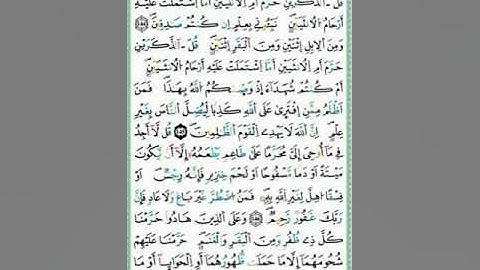 قُلَ ـ آلذَّكَرَيْنِ حَرَّمَ أَمِ اِلُانثَيَيْنِ أَمَّا اَشْتَمَلَتْ عَلَيْهِ
أَرْحَامُ اُلُانثَيَيْنِ نَبِّـُٔونِے بِعِلْمٍ اِن كُنتُمْ صَٰدِقِينَ
وَمِنَ اَلِابِلِ اِثْنَيْنِ وَمِنَ اَلْبَقَرِ اِثْنَيْنِ قُلَ ـ آلذَّكَرَيْنِ
حَرَّمَ أَمِ اِلُانثَيَيْنِ أَمَّا اَشْتَمَلَتْ عَلَيْهِ أَرْحَامُ اُلُانثَيَيْنِ
أَمْ كُنتُمْ شُهَدَآءَ اِذْ وَصَّيٰكُمُ اُللَّهُ بِهَٰذَا فَمَنَ
اَظْلَمُ مِمَّنِ اِفْتَرىٰ عَلَى اَللَّهِ كَذِباً لِّيُضِلَّ اَلنَّاسَ بِغَيْرِ
عِلْمٍ اِنَّ اَللَّهَ لَا يَهْدِے اِلْقَوْمَ اَلظَّٰلِمِينَ قُل لَّآ أَجِدُ
فِے مَآ أُوحِيَ إِلَيَّ مُحَرَّماً عَلَىٰ طَاعِمٍ يَطْعَمُهُۥٓ إِلَّآ أَنْ يَّكُونَ
مَيْتَةً اَوْ دَماً مَّسْفُوحاً اَوْ لَحْمَ خِنزِيرٍ فَإِنَّهُۥ رِجْسٌ اَوْ
فِسْقاً اُهِلَّ لِغَيْرِ اِللَّهِ بِهِۦ فَمَنُ اُضْطُرَّ غَيْرَ بَاغٍ وَلَا عَادٍ فَإِنَّ
رَبَّكَ غَفُورٌ رَّحِيمٌ وَعَلَى اَلذِينَ هَادُواْ حَرَّمْنَا
كُلَّ ذِے ظُفُرٍ وَمِنَ اَلْبَقَرِ وَالْغَنَمِ حَرَّمْنَا عَلَيْهِمْ
شُحُومَهُمَآ إِلَّا مَا حَمَلَتْ ظُهُورُهُمَآ أَوِ اِلْحَوَايَآ أَوْ مَا